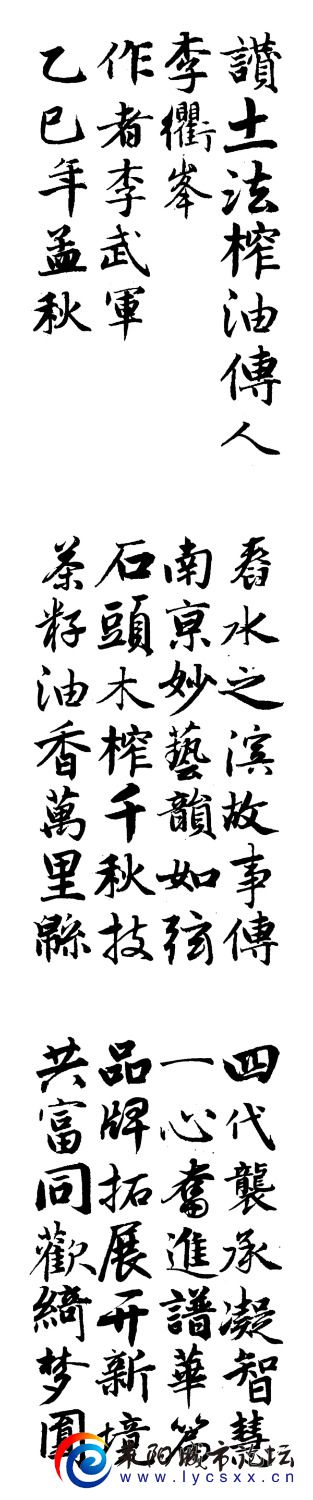 讚土法榨油傳人
李衢峯
作者李武軍
乙巳年孟秋
舂水之滨故事傳
南亰妙藝韻如弦
石頭木榨千秋技
茶籽油香萬里緜
四代襲承凝智慧
一心奮進譜華篇
品牌拓展开新境
共富同歡綺梦圓
www.lycsxx.cn